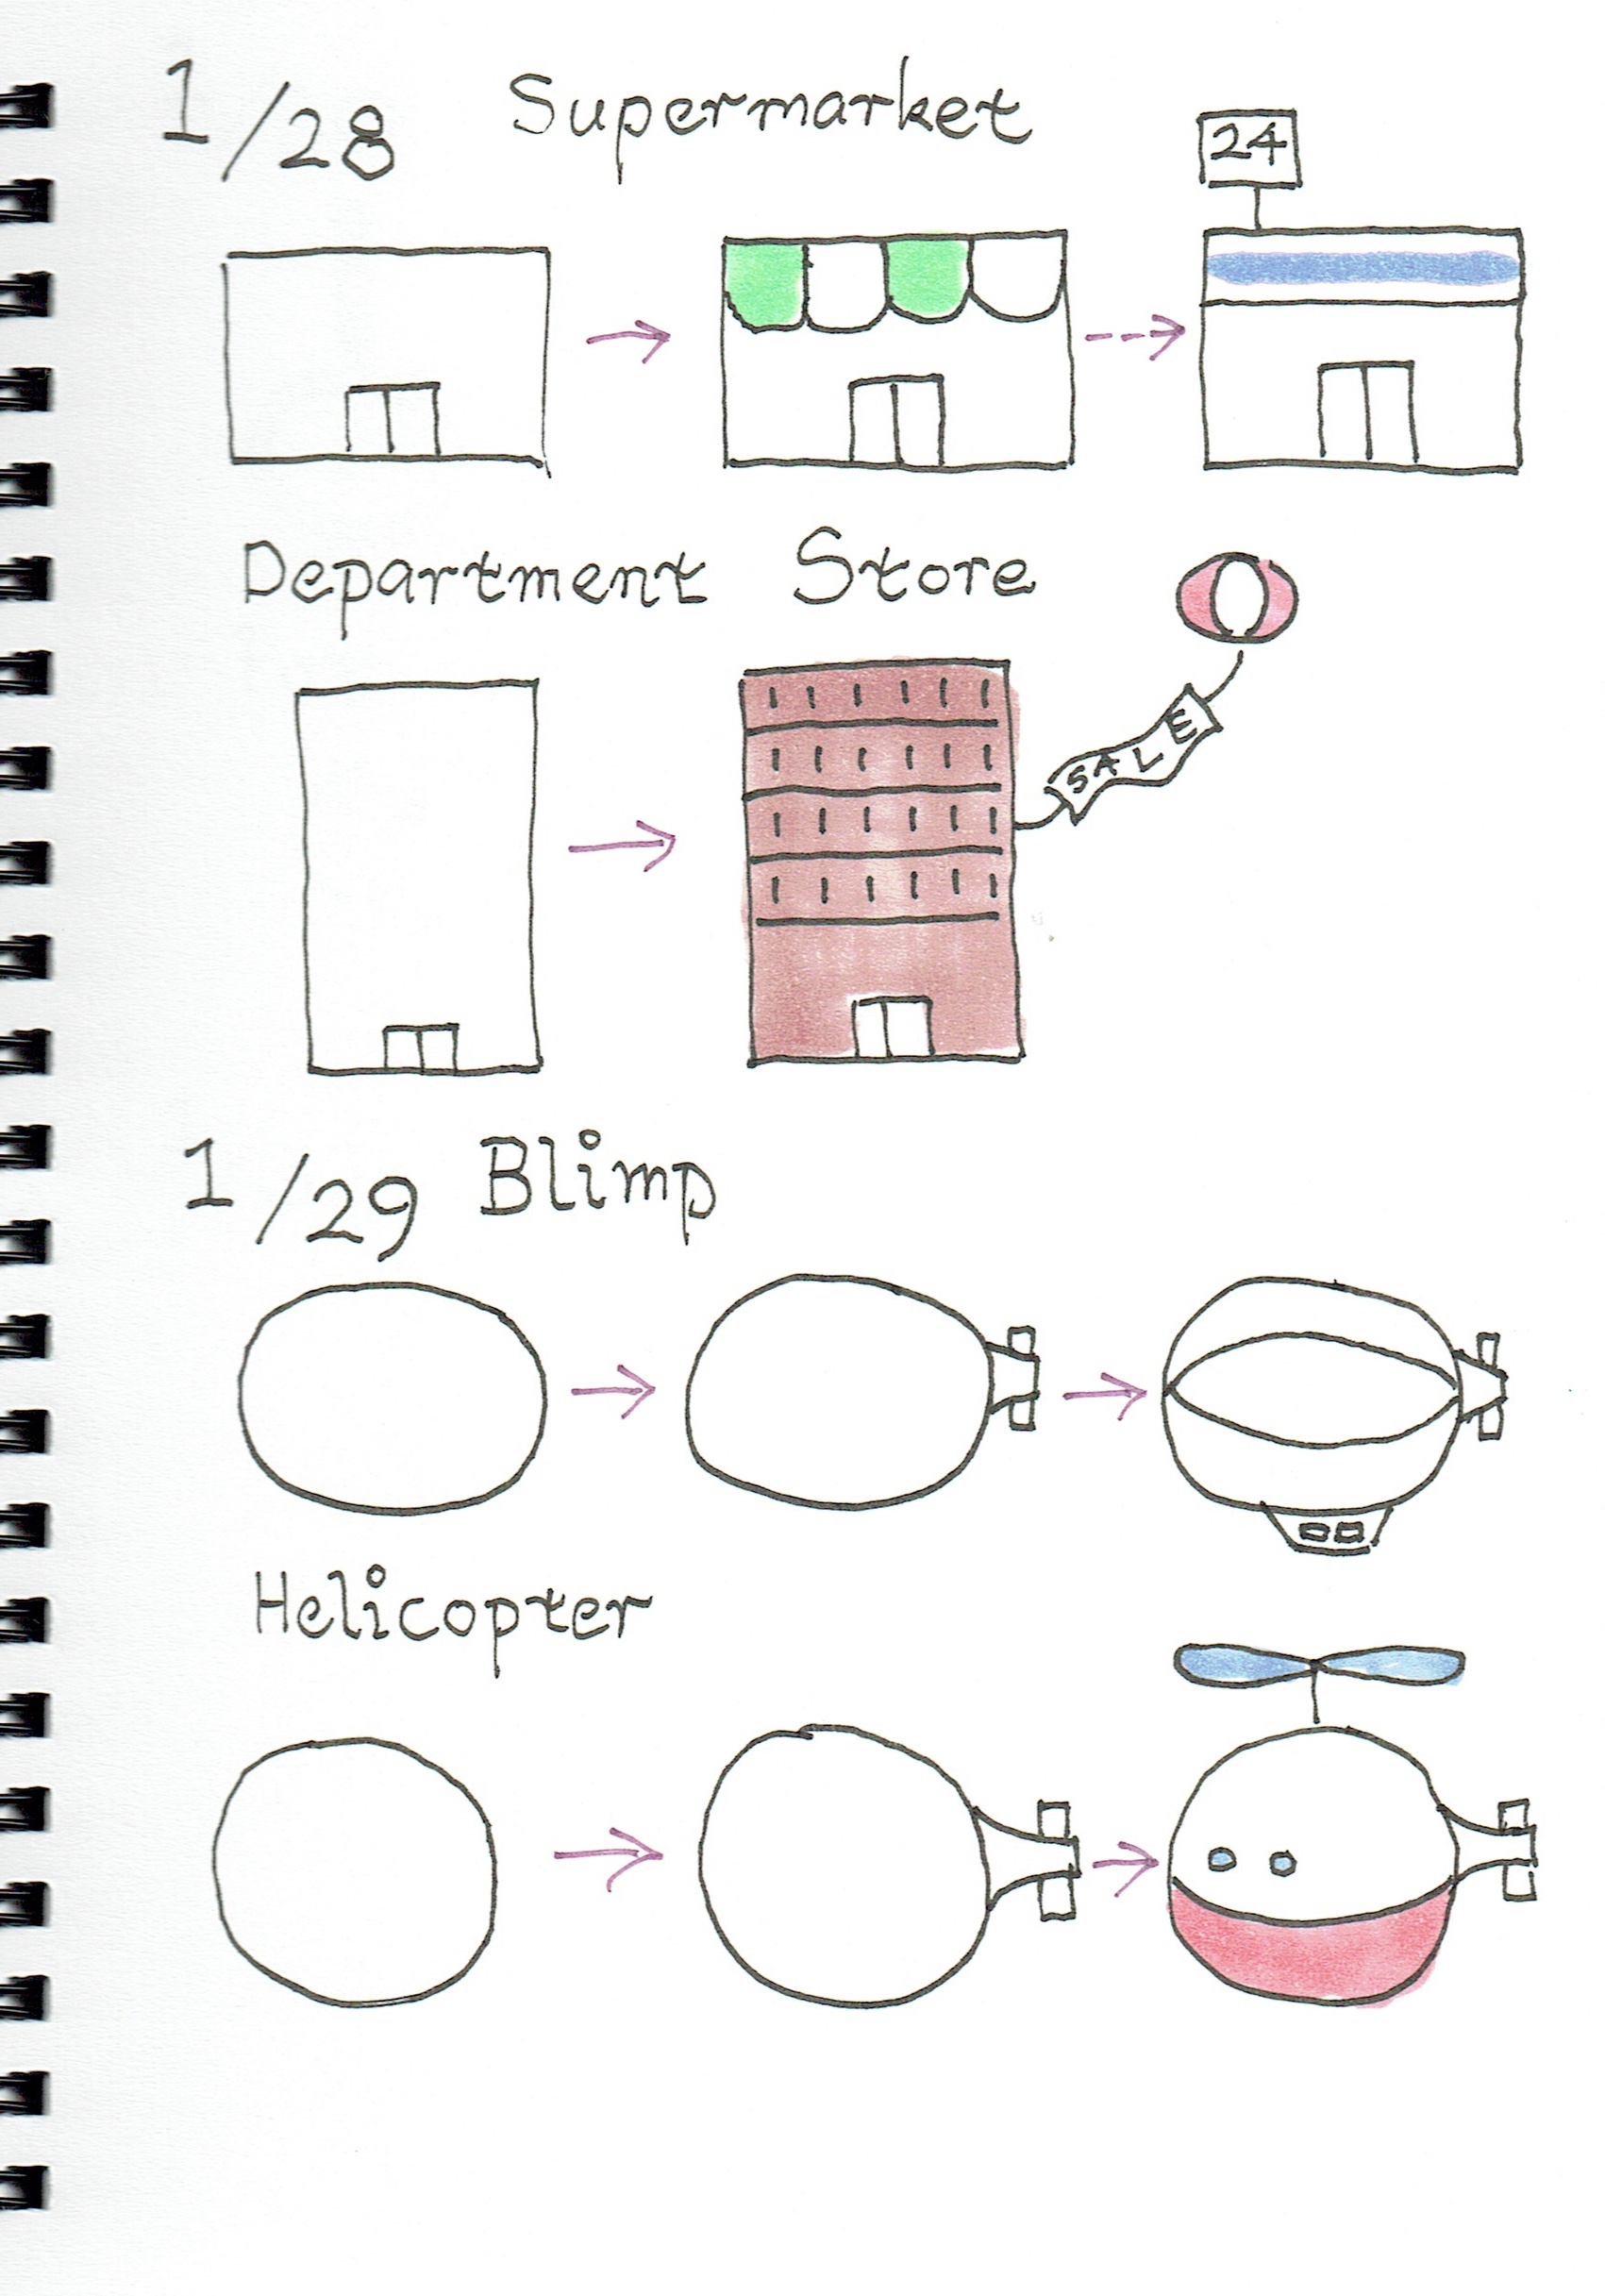 1/28 Supermarket
24
Department Store
SALE
1/29 Blimp
Helicopter